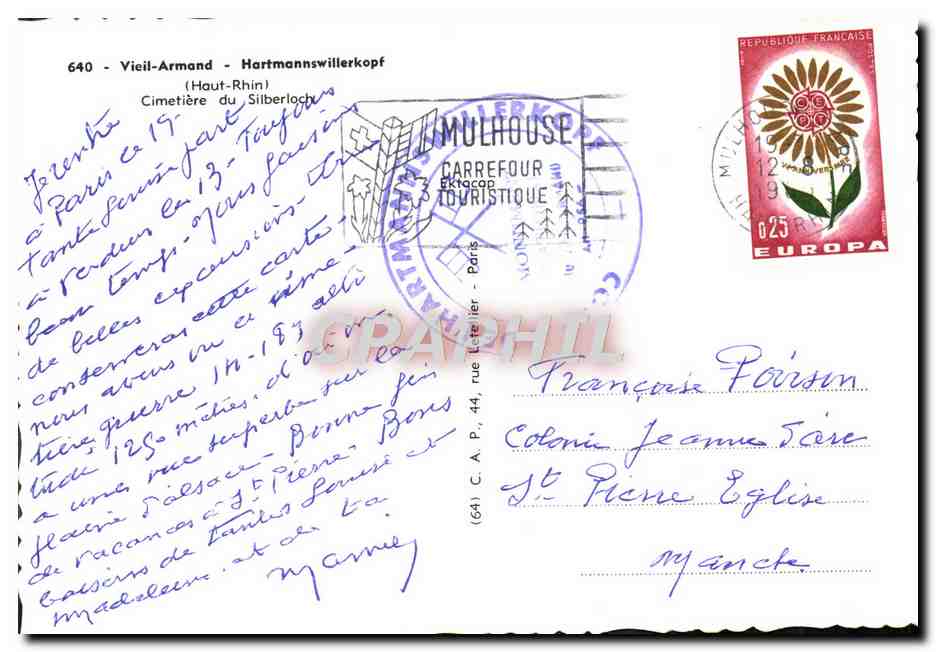 640 - Vieil-Armand - Hartmannswillerkopf
(Haut-Rhin)
Cimetière du Silberloch
Je rentre
à Paris ce 19.
Tante Louise part
à Verdun le 13 - Toujours
beau temps. nous faisons
de belles excursions. Tu
conserveras cette carte.
nous avons vu ce cime-
tière guerre 14-18, alti
tude 1250 mètres, d'où on
a une vue superbe sur la
plaine d'alsace - Bonne fin
de vacances à St Pierre. Bons
baisers de tantes Louise et
Madeleine et de ta
Mamie
MULHOUSE
CARREFOUR
TOURISTIQUE
Ektacap
HARTMANNSWILLERKOPF
MULHOUSE
12 - 8
REPUBLIQUE FRANÇAISE
POSTES
CEPT
0,25
EUROPA
CPAPHIL
(64) C. A. P., 44, rue Letellier - Paris
Françoise Poirson
Colonie Jeanne d'arc
St Pierre Eglise
Manche